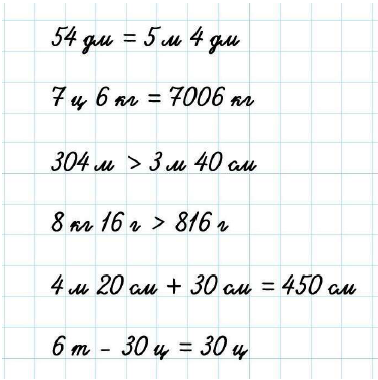 54 дм = 5 м 4 дм
7 ц 6 кг = 7006 кг
304 м > 3 м 40 см
8 кг 16 г > 816 г
4 м 20 см + 30 см = 450 см
6 т - 30 ц = 30 ц